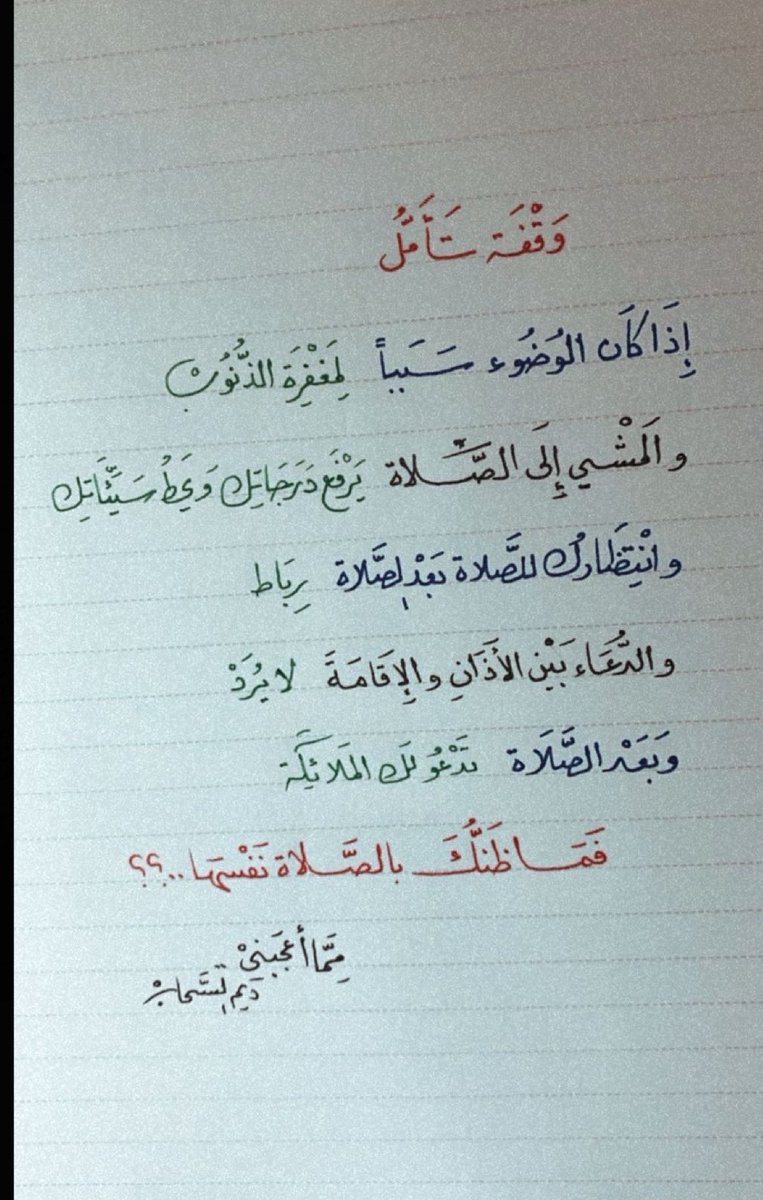 وَقْفَة تَأَمُّل
إِذَا كَانَ الوُضُوء سَبَباً لِمَغْفِرَة الذُّنُوْب
والَمْشْي إِلَى الصَّلاة يَرْفَع دَرَجَاتِك وَيَحُطُ سَيِّئَاتِك
وانْتِظَارك للصَّلاة بَعْد الصَّلاة رِبَاط
والدُّعَاء بَيْن الأَذَانِ والإِقَامَةَ لا يُرَدْ
وَبَعَدْ الصَّلَاة تَدْعُو لَك المَلائِكَة
فَمَا ظَنُّكَ بالصَّلاة نَفْسَهَا..؟؟
مِمَّا أعْجَبَنِيْ
دَيِم السَّحَابْ